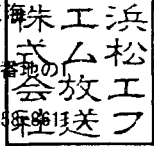 浜松エフ
エム放送
株式会社
海
番地の